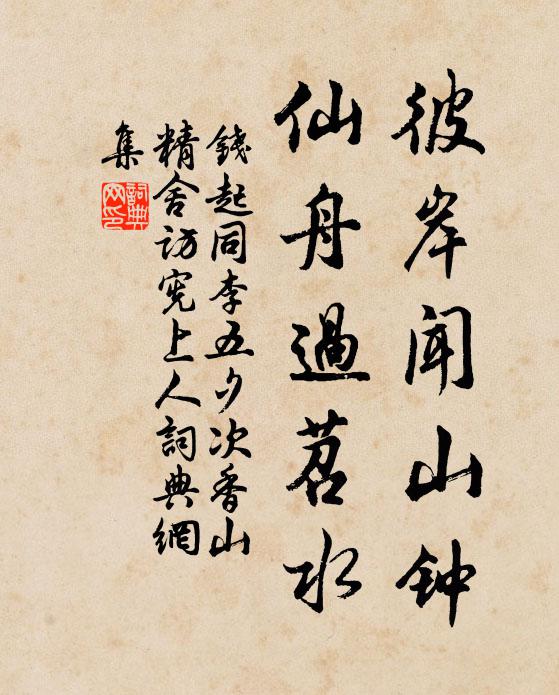 彼岸闻山钟
仙舟過苕水
錢起同李五夕次香山
精舍访宪上人詞典網
集
詞典
网印